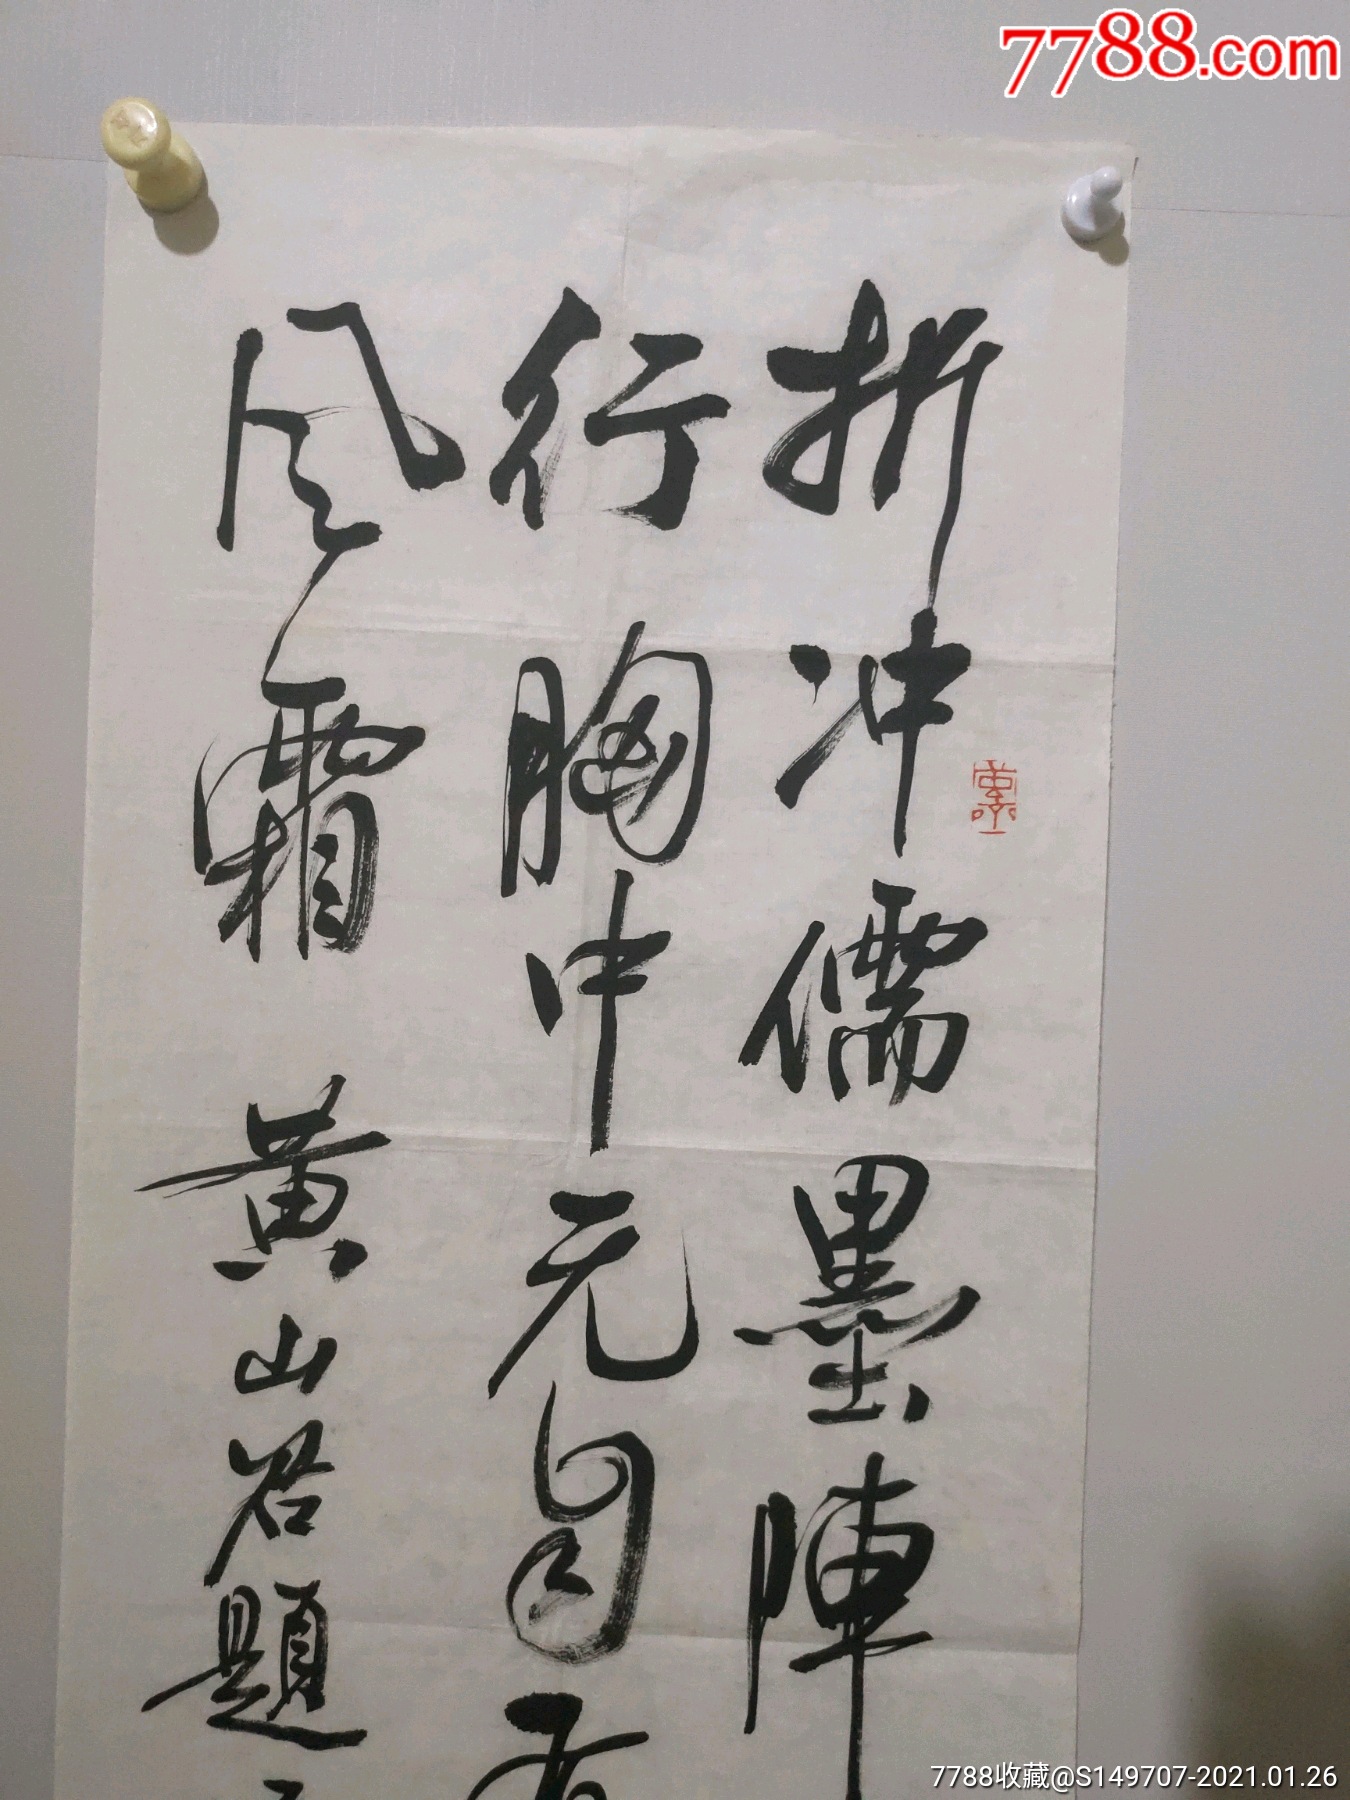 7788.com
折冲儒墨陣
行胸中元自有
風霜 黄山谷題
7788收藏@S149707-2021.01.26